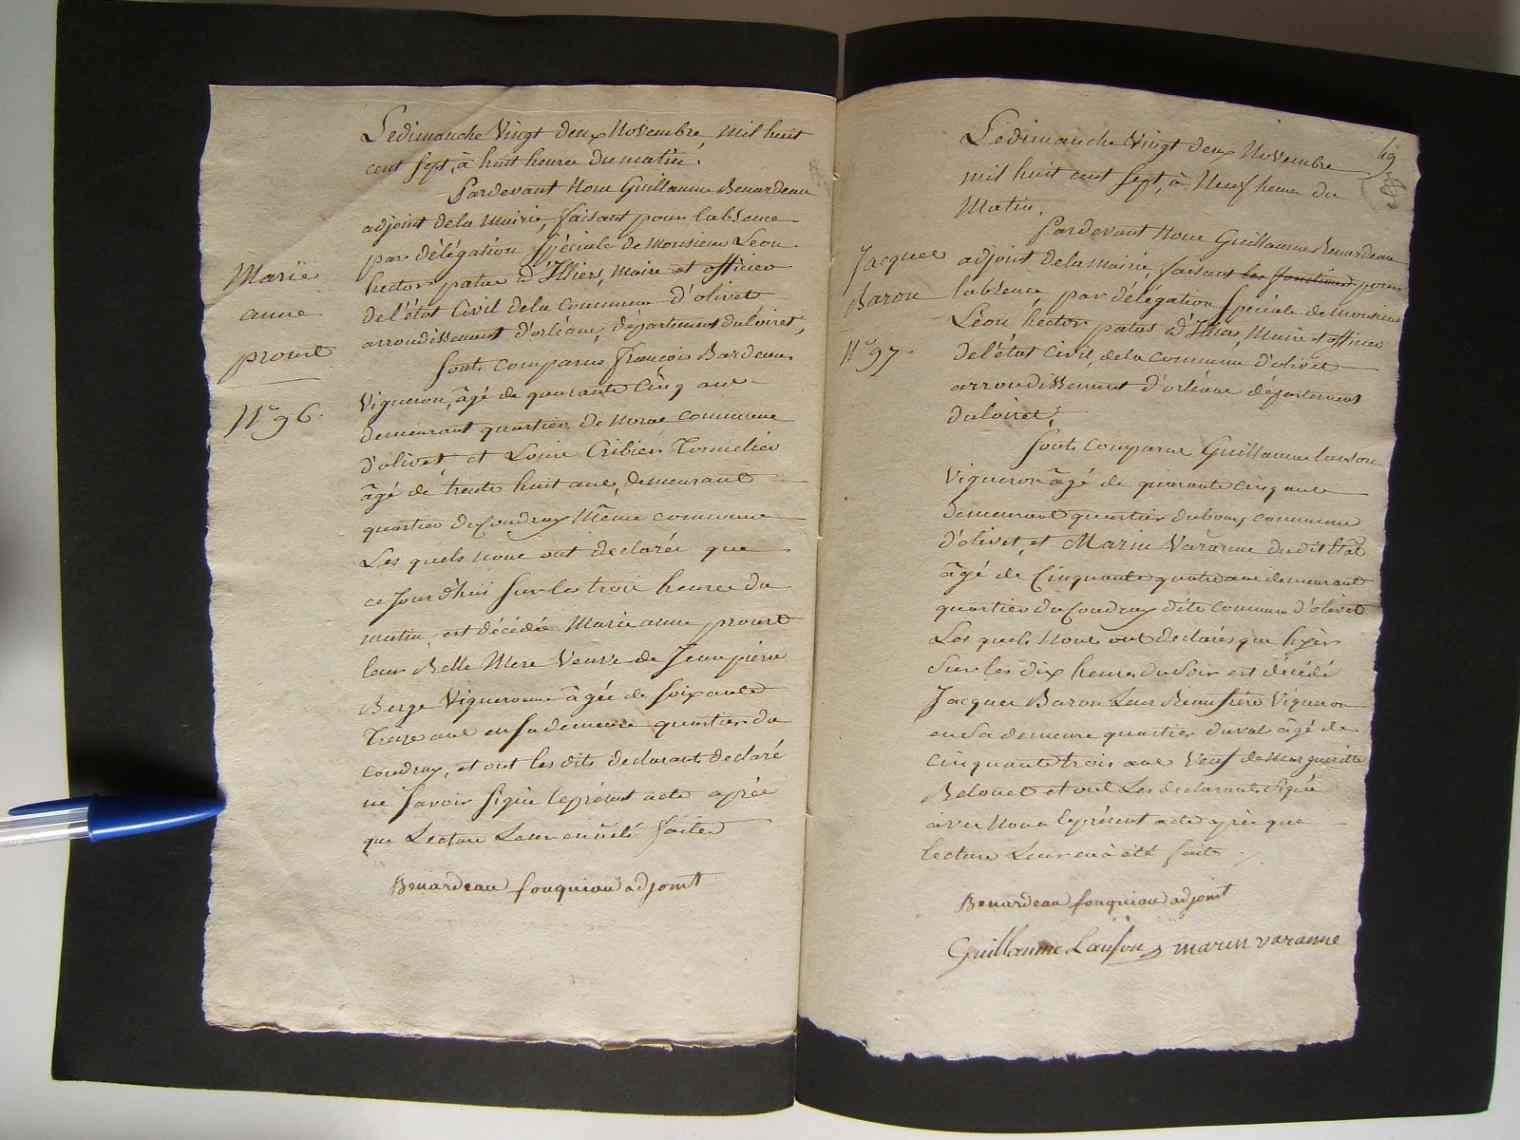 Le dimanche Vingt deux Novembre mil huit
cent sept, à huit heures du matin.
Pardevant Nous Guillaume Benardeau
adjoint de la Mairie, faisant pour l'absence
par délégation spéciale de Monsieur Leon
hector patas d'Illiers, Maire et officier
de l'état Civil de la Commune d'olivet
arrondissement d'orléans, département du loiret,
Marie
anne
proust
N.º 96.
sont comparus françois Bardeau
Vigneron, âgé de quarante Cinq ans
demeurant quartier de commune
d'olivet, et Louis Tonnelier
âgé de trente huit ans, demeurant
quartier du Coudray Même commune
Les quels nous ont declarés que
ce jourd'hui sur les trois heures du
matin, est décédée Marie anne proust
leur Belle Mere Veuve de Jean pierre
Berge Vigneronne âgée de soixante
treize ans en sa demeure quartier du
coudray, et ont les dits declarants declaré
ne savoir signer le présent acte après
que Lecture Leur en a été faite
Benardeau fouqueau adjoint
69
Le dimanche Vingt deux Novembre
mil huit cent sept, à Neuf heures du
Matin.
Jacques
Baron
N.º 97.
Pardevant Nous Guillaume Benardeau
adjoint de la Mairie, faisant les fonctions pour
l'absence, par délégation spéciale de Monsieur
Léon hector patas d'Illiers, Maire et officier
de l'état Civil, de la commune d'olivet
arrondissement d'orléans département
du loiret;
sont comparus Guillaume lanson
Vigneron âgé de quarante cinq ans
demeurant quartier du bourg commune
d'olivet, et Marin Varanne du dit Etat
âgé de Cinquante quatre ans demeurant
quartier du Coudray dite commune d'olivet
Les quels Nous ont declarés que hyer
sur les dix heures du soir est décédé
Jacques Baron Leur Beaufrere Vigneron
en sa demeure quartier du val âgé de
cinquante trois ans Veuf de Marguerite
Belouet et ont Les declarants signé
avec Nous le présent acte après que
lecture Leur en à été faite.
Benardeau fouqueau adjoint
Guillaume Lanson marin varanne